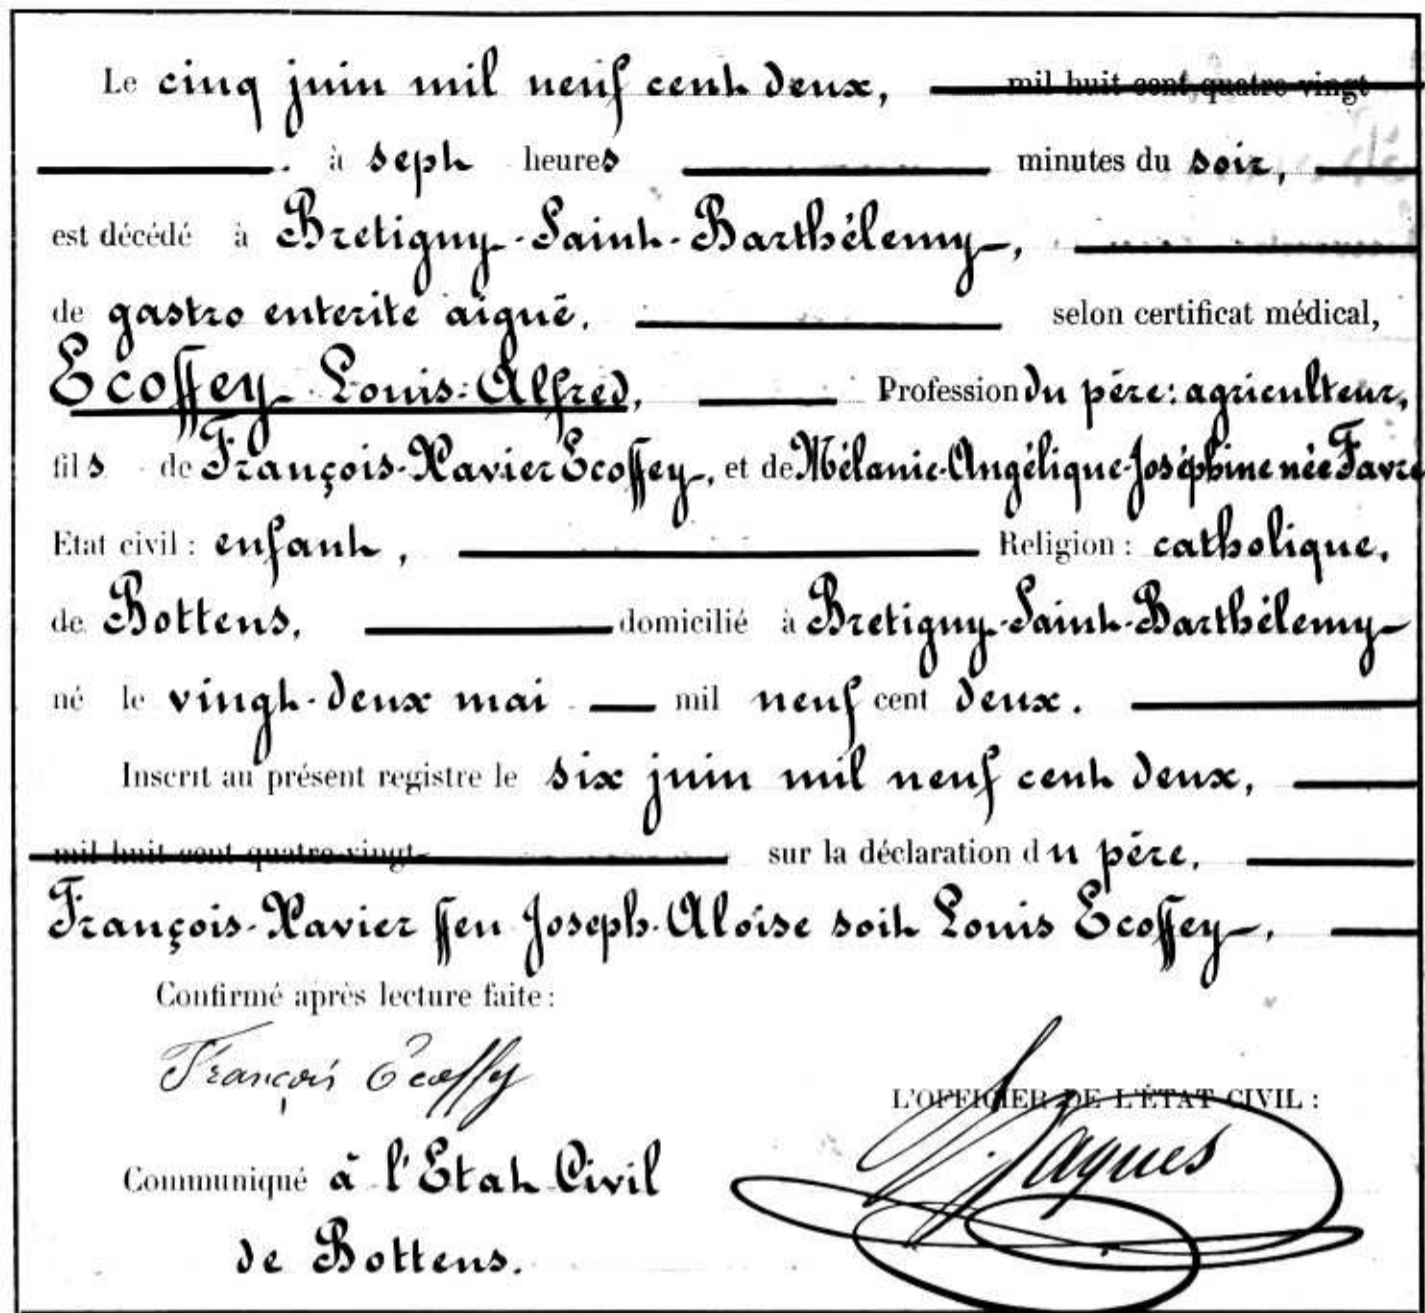 Le cinq juin mil neuf cent deux, mil huit cent quatre-vingt
à sept heures minutes du soir,
est décédé à Bretigny-Saint-Barthélemy,
de gastro enterite aiguë, selon certificat médical,
Ecoffey Louis-Alfred, Profession du père: agriculteur,
fils de François-Xavier Ecoffey, et de Mélanie-Angélique-Joséphine née Favre
Etat civil : enfant, Religion : catholique,
de Bottens, domicilié à Bretigny-Saint-Barthélemy
né le vingt-deux mai mil neuf cent deux.
Inscrit au présent registre le six juin mil neuf cent deux,
mil huit cent quatre-vingt- sur la déclaration du père,
François-Xavier ffeu Joseph-Aloïse soit Louis Ecoffey,
Confirmé après lecture faite :
François Ecoffey
L'OFFICIER DE L'ÉTAT CIVIL :
Jaques
Communiqué à l'Etat Civil
de Bottens.